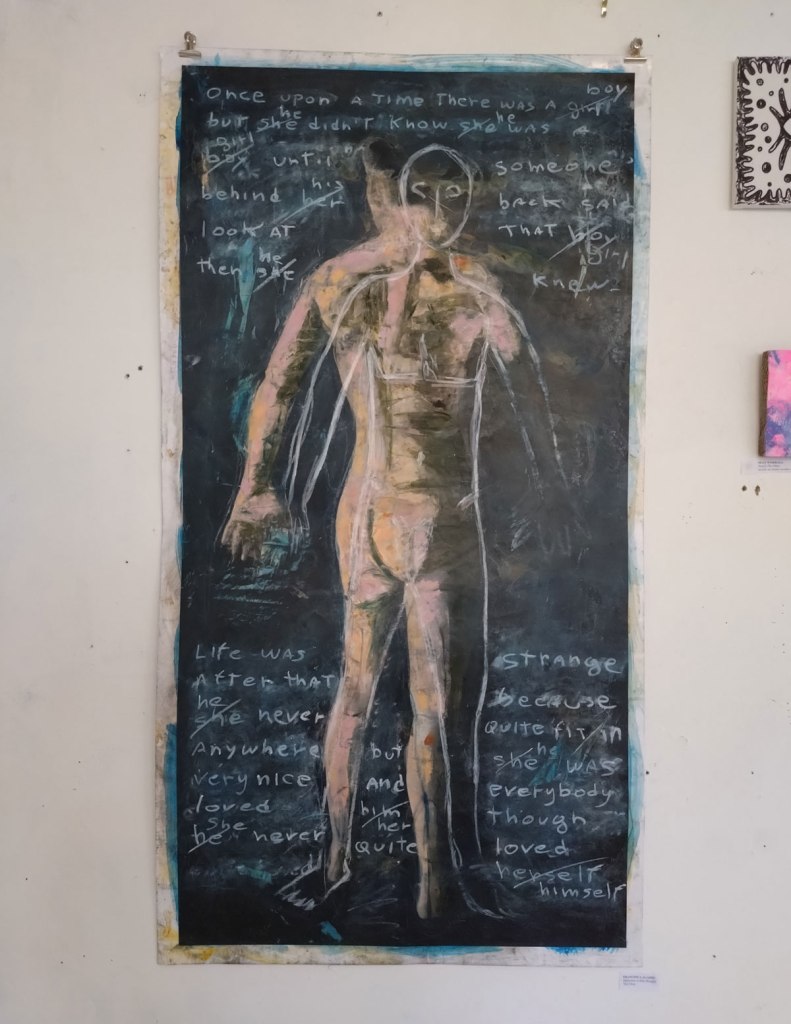 boy
Once upon a Time There was a girl
he he
but she didn't know she was a
girl
boy until someone
his
behind her back said
look at That boy
girl
he
then she knew
Life was strange
After that because
he
she never quite fit in
he
Anywhere but she was
very nice And everybody
loved him though
she her
he never quite loved
herself
himself